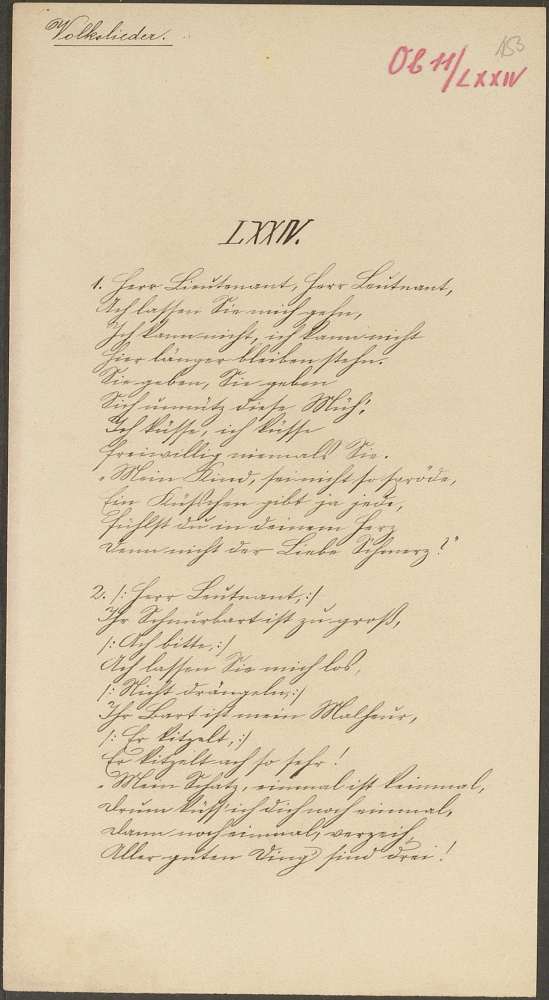 Volkslieder.
153
Ob 11/LXXIV
LXXIV.
1. Herr Lieutenant, Herr Leutnant,
Ach lassen Sie mich gehn,
Ich kann nicht, ich kann nicht
Hier länger bleiben stehn.
Sie geben, Sie geben
Sich unnütz diese Müh',
Ich küsse, ich küsse
Freiwillig niemals Sie.
"Mein Kind, sei nicht so spröde,
Ein Küßchen gibt ja jede,
Fühlst du in deinem Herz
Denn nicht der Liebe Schmerz?"
2. /: Herr Leutnant, :/
Ihr Schnurrbart ist zu groß,
/: Ach bitte, :/
Ach lassen Sie mich los,
/: Nicht drängeln, :/
Ihr Bart ist mein Malheur,
/: Er kitzelt, :/
Er kitzelt ach so sehr!
"Mein Schatz, einmal ist keinmal,
Drum küss' ich dich noch einmal,
Dann noch einmal, verzeih,
Aller guten Ding' sind drei!